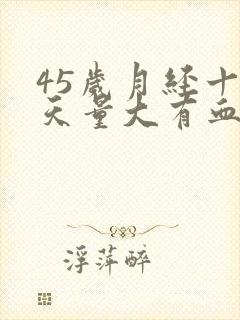 45岁月经十
天量大有血
浮萍醉